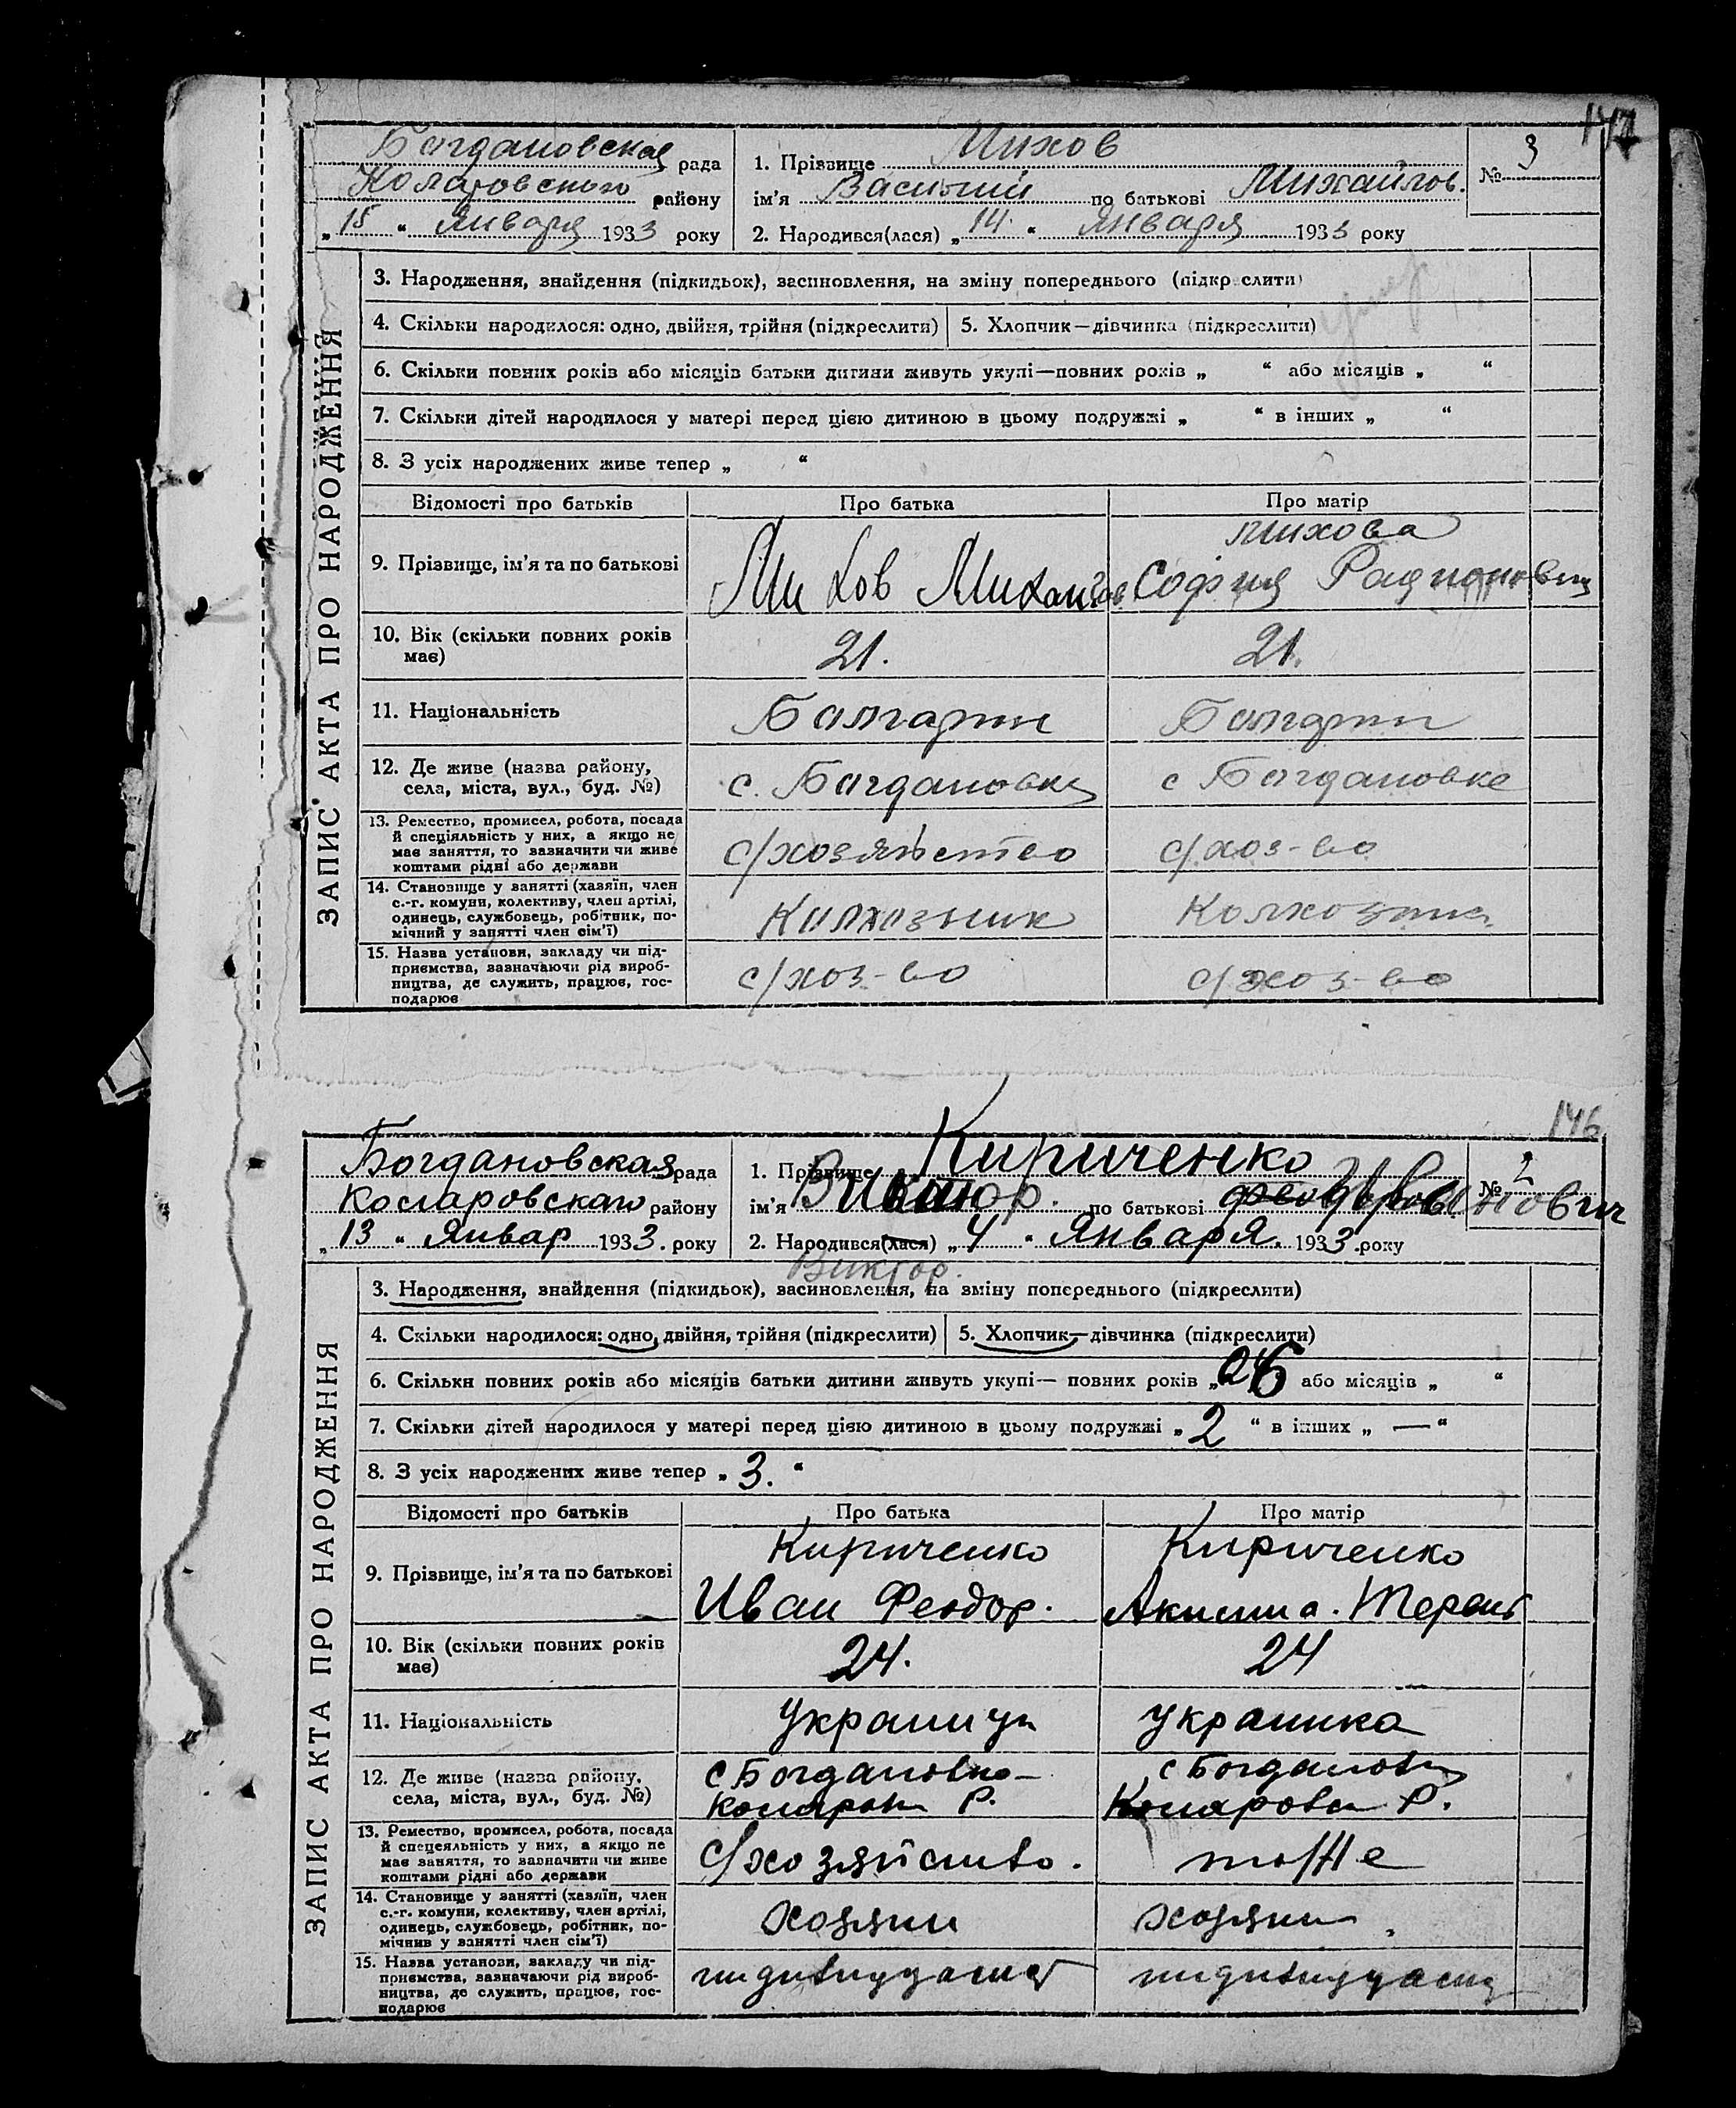 147
Богдановская рада
Коларовского району
„ 15 “ Января 1933 року
1. Прізвище Михов
ім'я Василий по батькові Михайлов.
2. Народився(лася) „ 14 “ Января 1933 року
№ 3
ЗАПИС АКТА ПРО НАРОДЖЕННЯ
3. Народження, знайдення (підкидьок), засиновлення, на зміну попереднього (підкреслити)
умер
4. Скільки народилося: одно, двійня, трійня (підкреслити)
5. Хлопчик—дівчинка (підкреслити)
6. Скільки повних років або місяців батьки дитини живуть укупі—повних років „ “ або місяців „ “
7. Скільки дітей народилося у матері перед цією дитиною в цьому подружжі „ “ в інших „ “
8. З усіх народжених живе тепер „ “
Відомості про батьків Про батька Про матір
9. Прізвище, ім'я та по батькові
Михов Михаил
Михова
София
10. Вік (скільки повних років
має)
21. 21.
11. Національність Болгарин Болгарин
12. Де живе (назва району,
села, міста, вул., буд. №)
с. Богдановка с Богдановке
13. Ремество, промисел, робота, посада
й спеціяльність у них, а якщо не
має заняття, то зазначити чи живе
коштами рідні або держави
с/хозяйство с/хоз-во
14. Становище у занятті (хазяїн, член
с.-г. комуни, колективу, член артілі,
одинець, службовець, робітник, по-
мічний у занятті член сім'ї)
Колхозник
15. Назва установи, закладу чи під-
приємства, зазначаючи рід вироб-
ництва, де служить, працює, гос-
подарює
с/хоз-во с/хоз-во
146
Богдановская рада
Коларовскаго району
„ 13 “ Январ 1933. року
1. Прізвище Кириченко
ім'я Виктор. по батькові Феодоров Иванович
2. Народився(лася) „ 4 “ Января. 1933. року
№ 2
Виктор.
ЗАПИС АКТА ПРО НАРОДЖЕННЯ
3. Народження, знайдення (підкидьок), засиновлення, на зміну попереднього (підкреслити)
4. Скільки народилося: одно, двійня, трійня (підкреслити)
5. Хлопчик—дівчинка (підкреслити)
6. Скільки повних років або місяців батьки дитини живуть укупі— повних років „ 6 або місяців „ “
7. Скільки дітей народилося у матері перед цією дитиною в цьому подружжі „ 2 “ в інших „ — “
8. З усіх народжених живе тепер „ 3. “
Відомості про батьків Про батька Про матір
9. Прізвище, ім'я та по батькові
Кириченко
Иван Феодор.
Кириченко
10. Вік (скільки повних років
має)
24. 24
11. Національність украинец украинка
12. Де живе (назва району,
села, міста, вул., буд. №)
с Богдановка
Коларовск Р.
с Богдановка
Коларовск Р.
13. Ремество, промисел, робота, посада
й спецеяльність у них, а якщо не
має заняття, то зазначити чи живе
коштами рідні або держави
С/хозяйство. тоже
14. Становище у занятті (хазяїн, член
с.-г. комуни, колективу, член артілі,
одинець, службовець, робітник, по-
мічнив у занятті член сім'ї)
хозяин хозяин
15. Назва установи, закладу чи під-
приємства, зазначаючи рід вироб-
ництва, де служить, працює, гос-
подарює